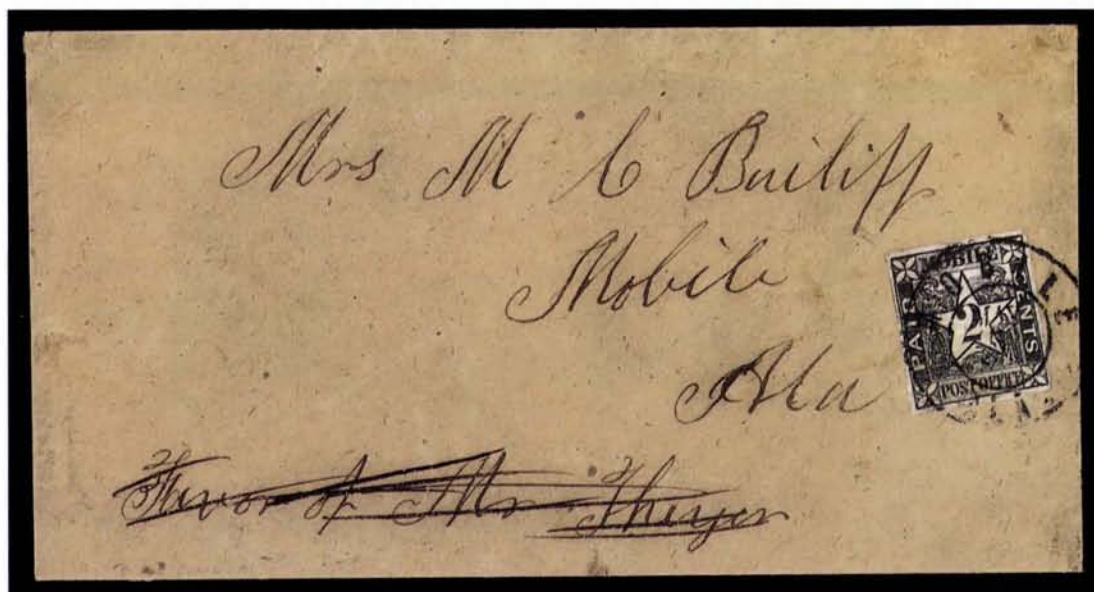 Mrs M C Bailiff
Mobile
Ala
MOBILE
PAID 2 CENTS
POST OFFICE
Favor of Mr Thayer